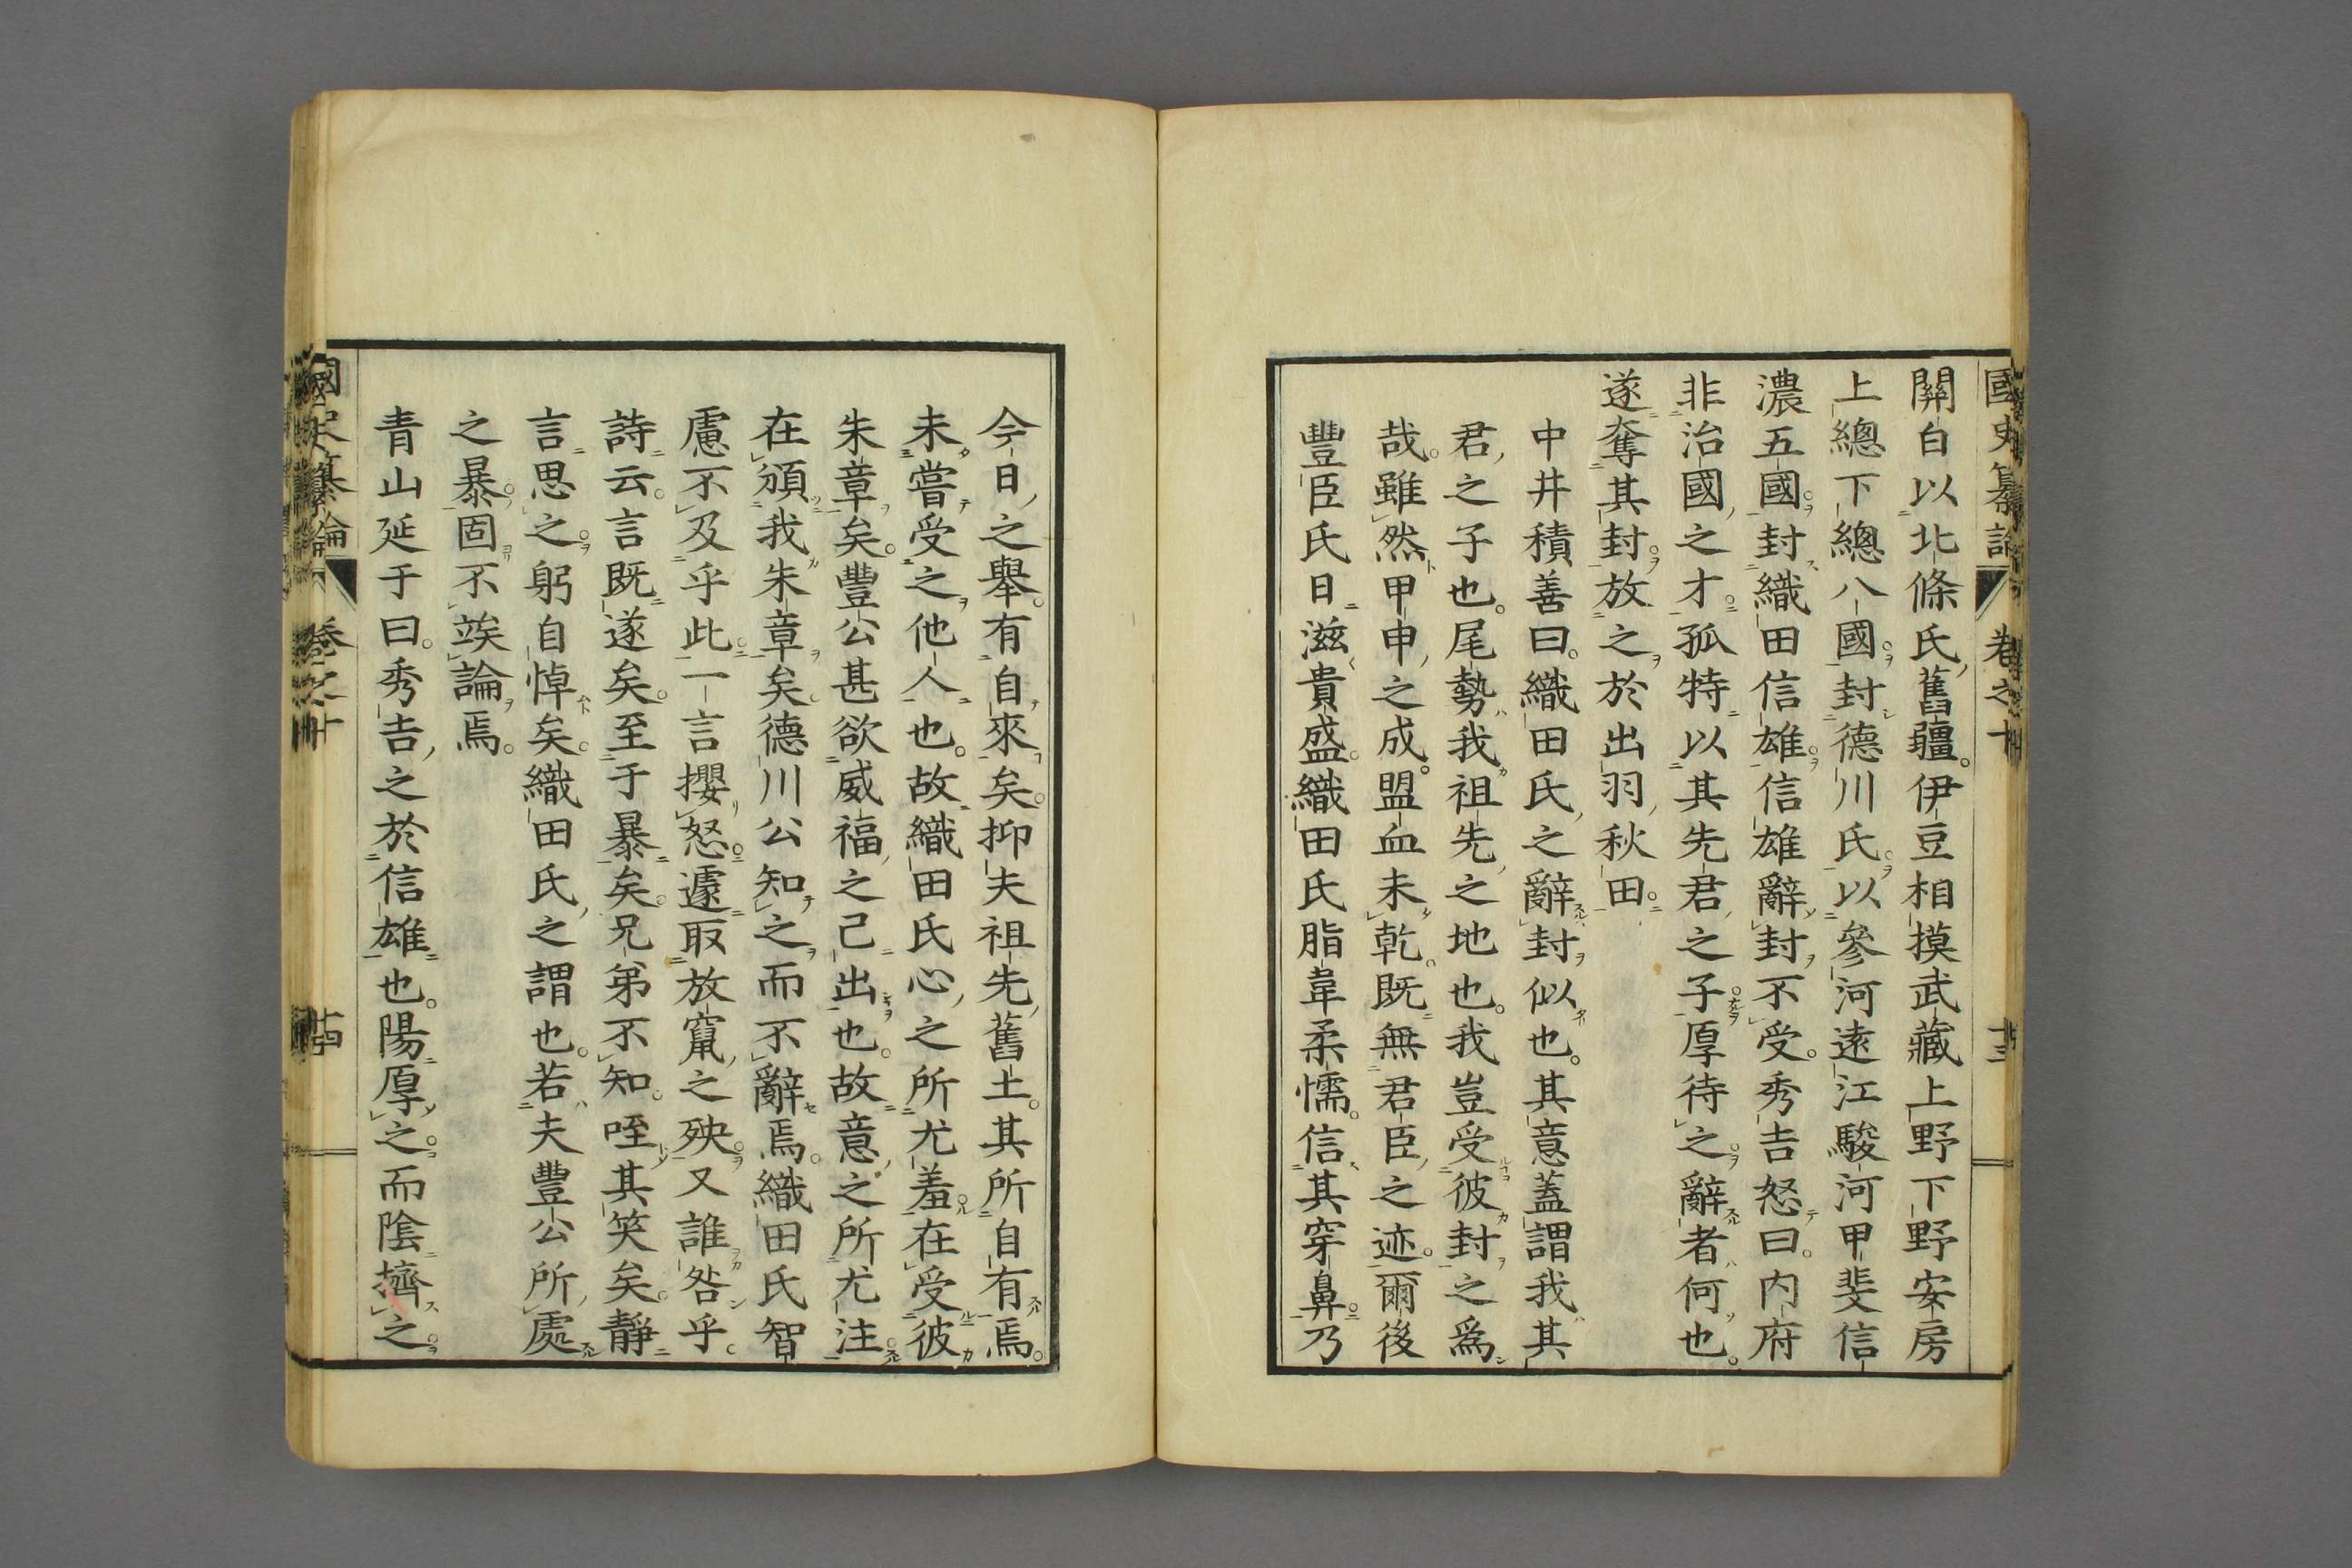 國史纂論
卷之十
關白以北條氏舊疆。伊豆相摸武藏上野下野安房
上總下總八國。封德川氏。以參河遠江駿河甲斐信
濃五國。封織田信雄。信雄辭封不受。秀吉怒曰。内府
非治國之才。孤特以其先君之子。厚待之。辭者何也。
遂奪其封。放之於出羽秋田。
中井積善曰。織田氏之辭封似也。其意蓋謂我其
君之子也。尾勢我祖先之地也。我豈受彼封之爲
哉。雖然甲申之成。盟血未乾。既無君臣之迹。爾後
豐臣氏日滋貴盛。織田氏脂韋柔懦。信其穿鼻。乃
今日之舉。有自來矣。抑夫祖先舊土。其所自有焉。
未嘗受之他人也。故織田氏心之所尤羞。在受彼
朱章矣。豐公甚欲威福之己出也。故意之所尤注。
在頒我朱章矣。德川公知之而不辭焉。織田氏智
慮不及乎此。一言攖怒。遽取放竄之殃。又誰咎乎。
詩云。言既遂矣。至于暴矣。兄弟不知。咥其笑矣。靜
言思之。躬自悼矣。織田氏之謂也。若夫豐公所處
之暴。固不竢論焉。
青山延于曰。秀吉之於信雄也。陽厚之。而陰擠之。
國史纂論
卷之十